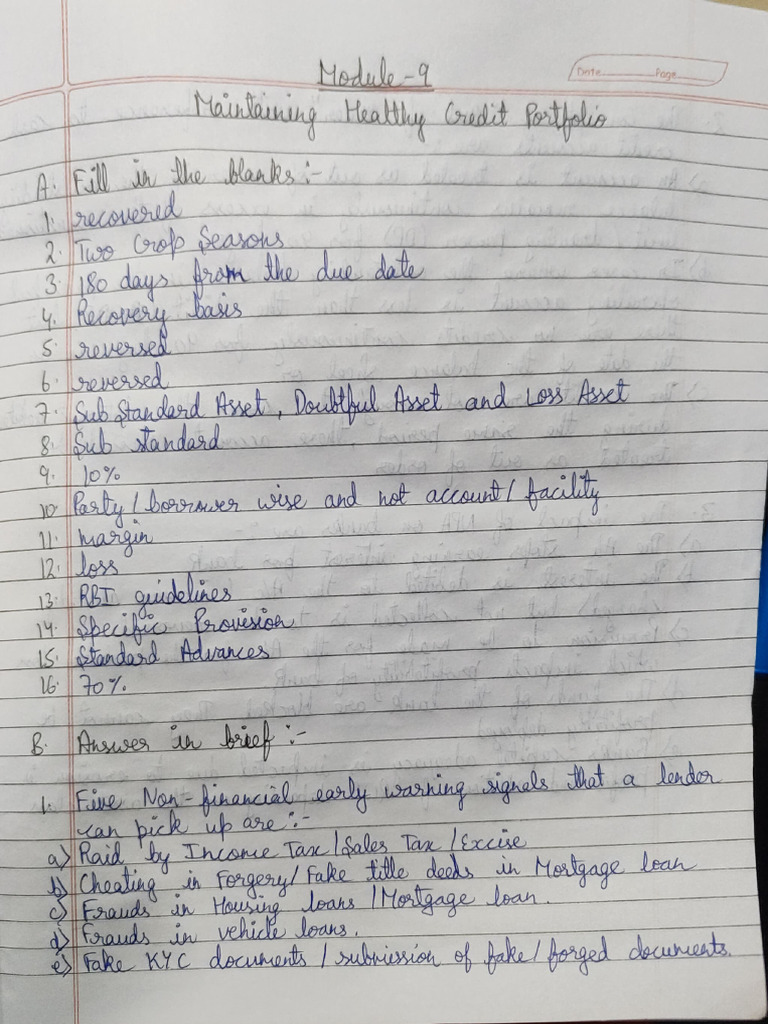 Module-9
Date Page
Maintaining Healthy Credit Portfolio
A. Fill in the blanks :-
1. recovered
2. Two Crop Seasons
3. 180 days from the due date
4. Recovery basis
5. reversed
6. reversed
7. Sub Standard Asset, Doubtful Asset and Loss Asset
8. Sub standard
9. 10%
10. Party/borrower wise and not account/facility
11. margin
12. loss
13. RBI guidelines
14. Specific Provision
15. Standard Advances
16. 70%
B. Answer in brief :-
1. Five Non-financial early warning signals that a lender
can pick up are :-
a) Raid by Income Tax/Sales Tax/Excise
b) Cheating in Forgery/Fake title deeds in Mortgage loan
c) Frauds in Housing loans/Mortgage loan.
d) Frauds in vehicle loans.
e) Fake KYC documents/submission of fake/forged documents.